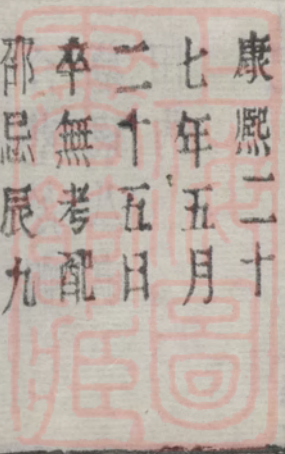 康熙二十
七年五月
二十五日
卒無考配
邵忌辰九